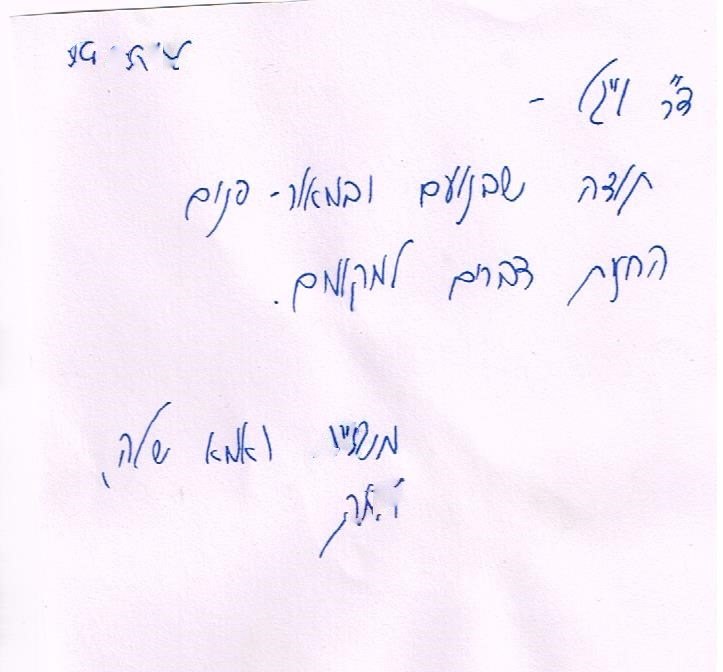 ד"ר ויגל -
תודה שבנועם ובמאור-פנים
החזרת דברים למקומם.
ואמא שלה,